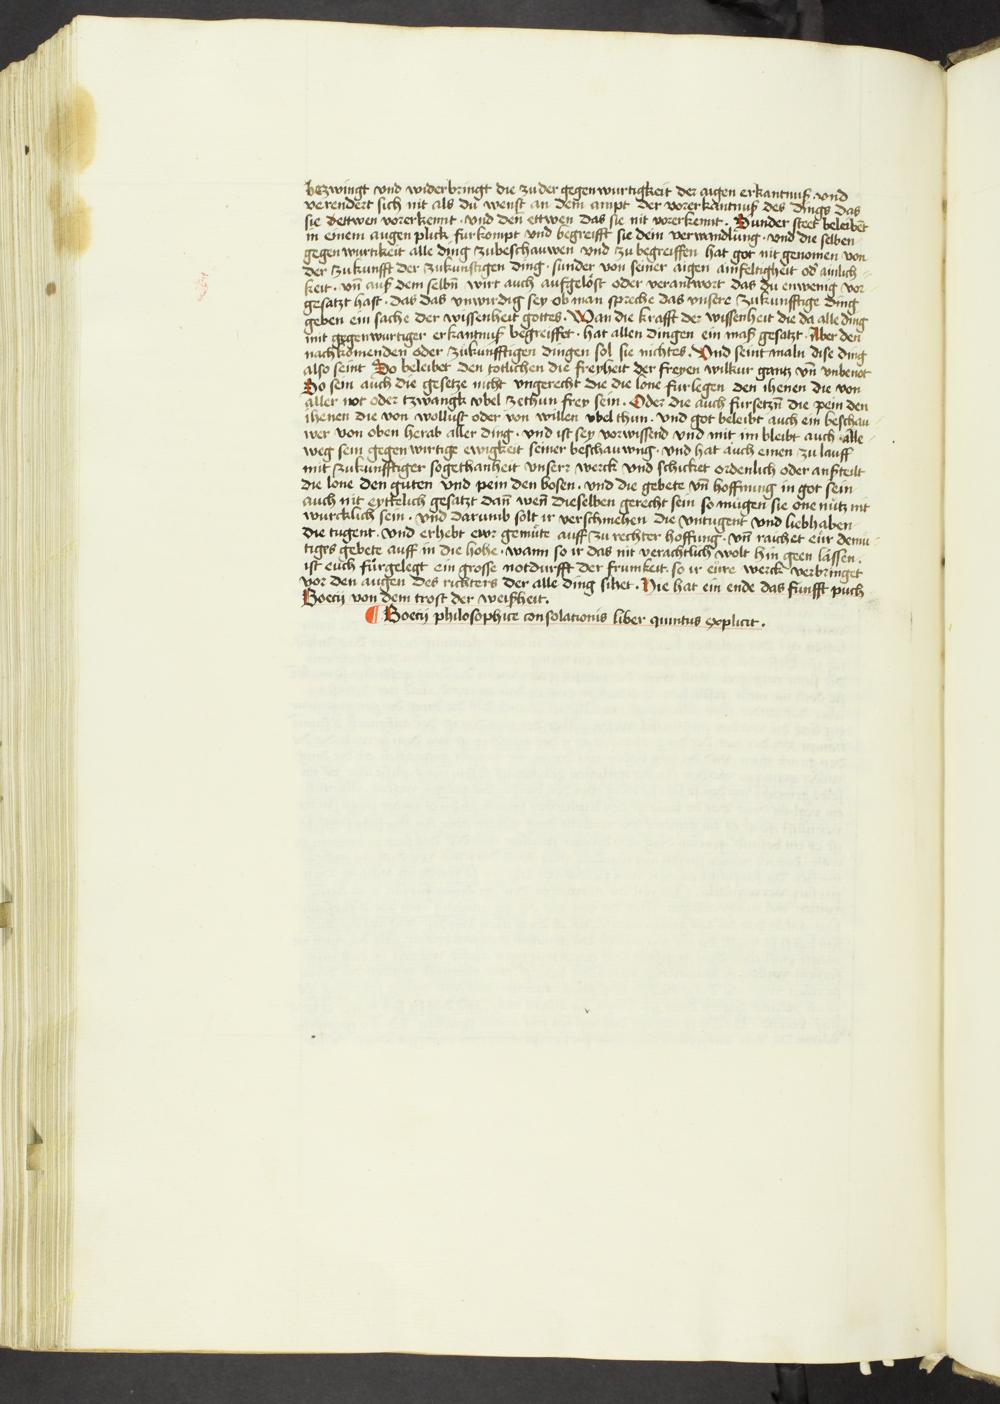 bezwingt vnd widerbringt die zu der gegenwurtigkeit der aigen erkantnuß · vnd
verendert sich nit als du wenst an dem ampt der vorerkantnuß des dings das
sie dettwen vorerkennt · vnd den ettwen das sie nit vorerkennt . Sunder steet beleibet
in einem augenplick furkompt vnd begreifft sie dein verwandlung · vnd die selben
gegenwurtikeit alle ding zubeschauwen vnd zu begreiffen hat got nit genomen von
der zukunfft der zukunftigen ding · sunder von seiner aigen ainfeltigheit od' ainlich
keit · vn̄ auß dem selbn̄ wirt auch aufgelöst oder verantwort das du enwenig vor
gesatzt hast · das das vnwirdig sey ob man spreche das vnsere zukunfftige ding
geben ein sache der wissenheit gottes . Wan die krafft der wissenheit die da alle ding
mit gegenwurtiger erkantnuß begreiffet · hat allen dingen ein maß gesatzt . Aber den
nachkomenden oder zukunfftigen dingen sol sie nichtes . Vnd seint maln dise ding
also seint So beleibet den totlichen die freyheit der freyen wilkur gantz vn̄ vnbenot
So sein auch die gesetze nicht vngerecht die die lone furlegen den ihenen die von
aller not oder tzwangk vbel zethun frey sein . Oder die auch fursetzn̄ die pein den
ihenen die von wollust oder von willen vbel thun · vnd got beleibt auch ein beschau
wer von oben herab aller ding · vnd ist sey vorwissend vnd mit im bleibt auch · alle
weg sein gegenwirtige ewigkeit seiner beschauwng · vnd hat auch einen zu lauff
mit zukunfftiger sogethanheit vnserr werck vnd schicket ordenlich oder außteilt
die lone den guten vnd pein den bosen . vnd die gebete vn̄ hoffnung in got sein
auch nit eyttelich gesatzt dan̄ wen̄ dieselben gerecht sein so mugen sie one nutz nit
wurcklich sein · vnd darumb solt ir verschmehen die vntugent vnd liebhaben
die tugent · vnd erhebt ewr gemute auff zu rechter hoffung · vn̄ rauchet eur demu
tigrs gebete auff in die hohe · wann so ir das nit verachtlich wolt hin geen lassen .
ist euch furgelegt ein grosse notdurfft der frumkeit . so ir eure werck verbringet
vor den augen des richters der alle ding sihet . Hie hat ein ende das funfft puch
Boecij von dem trost der weißheit .
¶ Boecij philosophice consolationis liber quintus explicit .